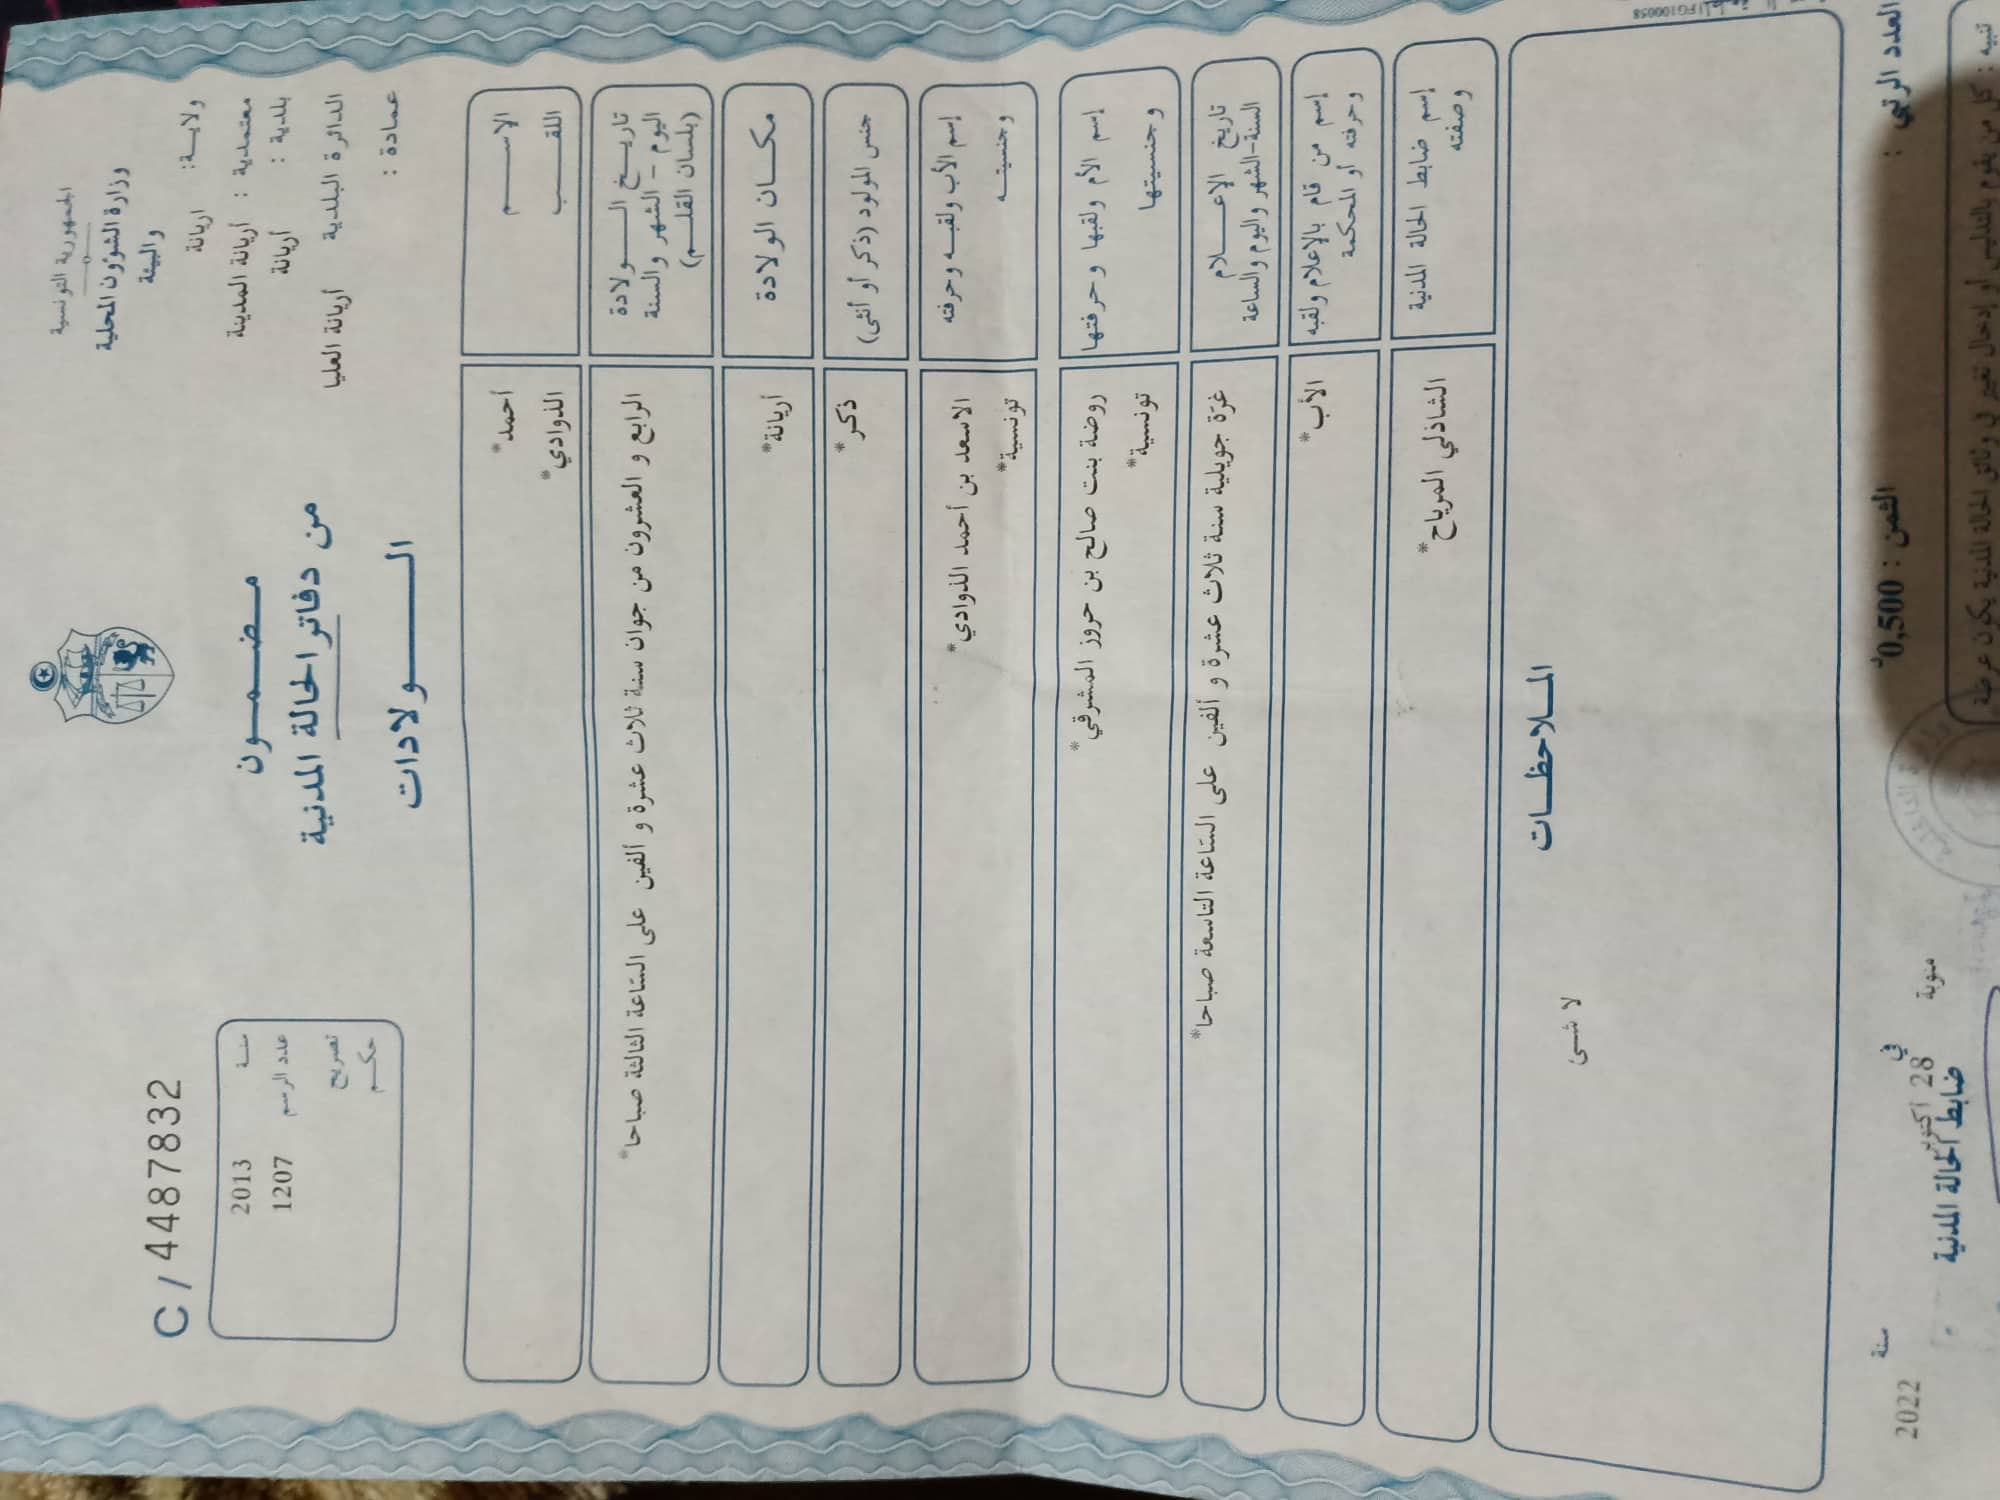 الجمهورية التونسية
وزارة الشؤون المحلية
والبيئة
ولايـة: اريانة
معتمدية : أريانة المدينة
بلدية : أريانة
الدائرة البلدية أريانة العليا
عمادة :
مـضـمـون
من دفاتر الحالة المدنية
الـولادات
C / 4487832
سنـة 2013
عدد الرسم 1207
تصريح
حكـم
الاسـم أحمد*
اللقـب الذوادي*
تاريـخ الـولادة
اليوم - الشهر والسنة
(بلسان القلـم)
الرابع و العشرون من جوان سنة ثلاث عشرة و ألفين على الساعة الثالثة صباحا*
مكـان الولادة أريانة*
جنس المولود (ذكر أو أنثى) ذكر*
إسم الأب ولقبـه وحرفته الاسعد بن أحمد الذوادي*
وجنسيتـه تونسية*
إسم الأم ولقبها وحرفتها روضة بنت صالح بن حروز المشرقي*
وجنسيتها تونسية*
تاريخ الإعـلام
السنة-الشهر واليوم والساعة
غرة جويلية سنة ثلاث عشرة و ألفين على الساعة التاسعة صباحا*
إسم من قام بالإعلام ولقبه
وحرفته أو المحكمة
الأب*
إسم ضابط الحالة المدنية
وصفته
الشاذلي المرياح*
المـلاحظـات
لا شئ
FG100058
العدد الرتبي :
الثمن : 0,500د
منوبة في 28 أكتوبر سنة 2022
ضابط الحالة المدنية
تنبيه : كل من يقوم بالتدليس أو إدخال تغيير في وثائق الحالة المدنية يكون عرضة